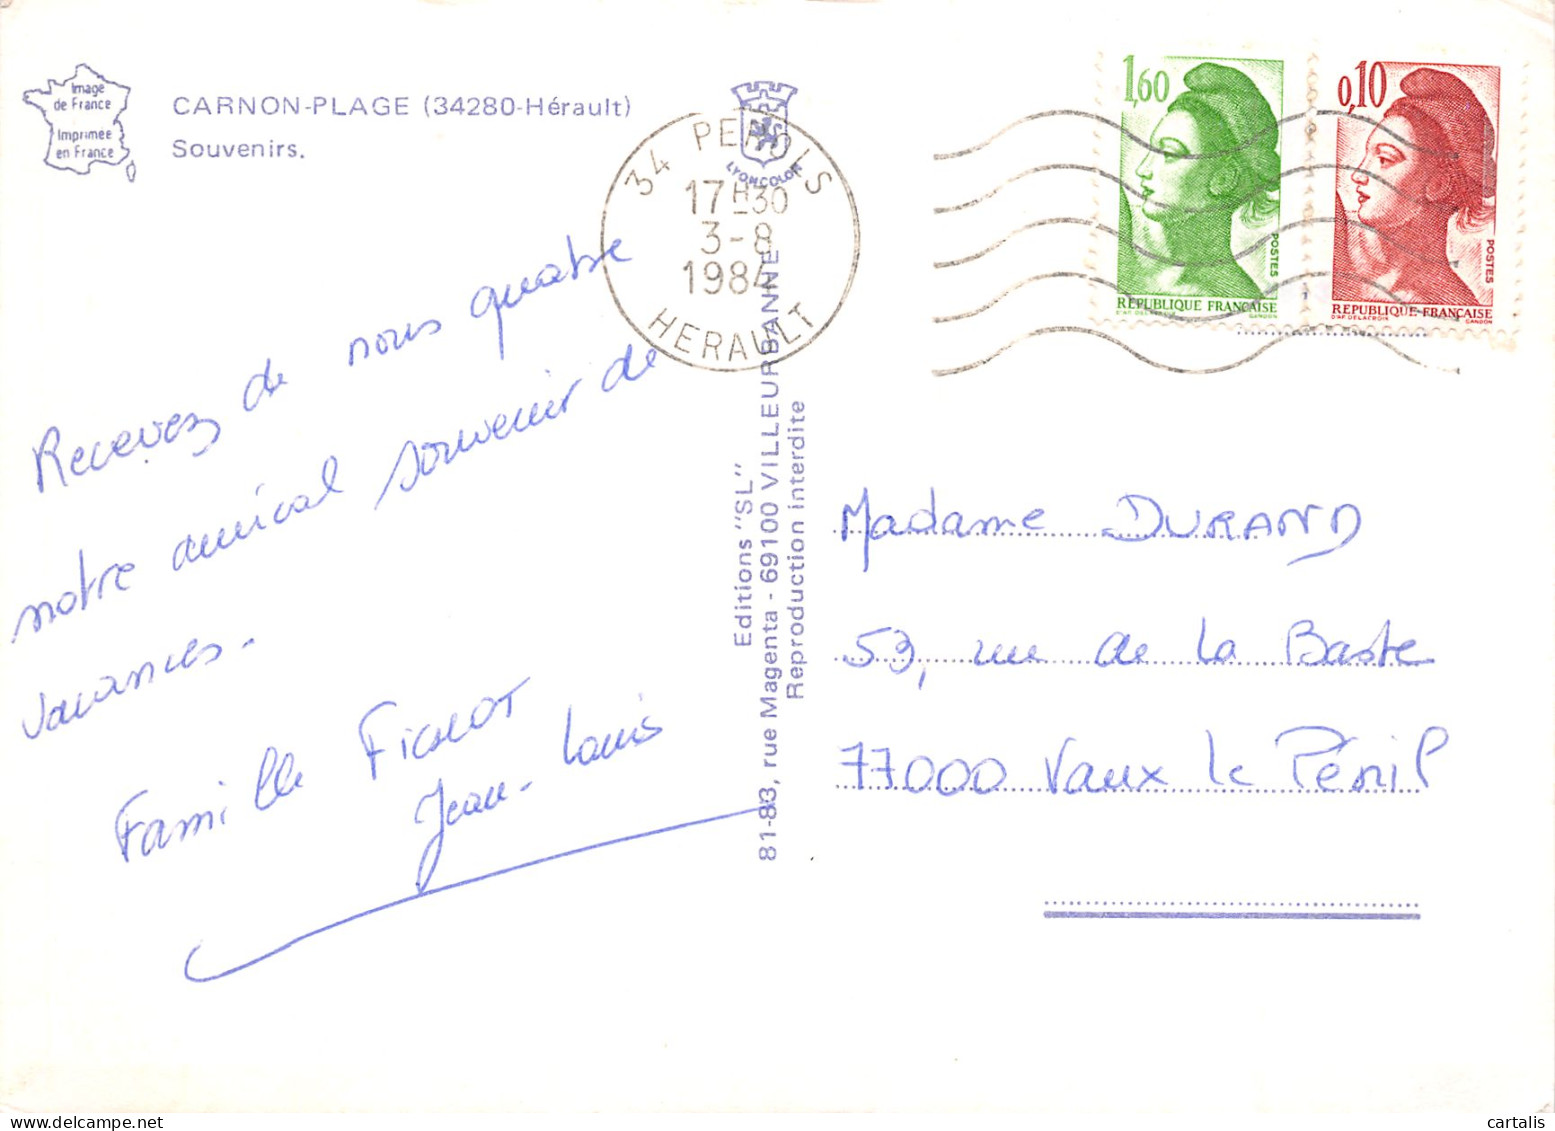 Image
de France
Imprimée
en France
CARNON-PLAGE (34280-Hérault)
Souvenirs.
LYONCOLOR
34 PEROLS
17H30
3-8
1984
HERAULT
1,60
POSTES
REPUBLIQUE FRANÇAISE
D'AP DELACROIX GANDON
0,10
POSTES
REPUBLIQUE FRANÇAISE
D'AP DELACROIX GANDON
Recevez de nous quatre
notre amical souvenir de
vacances.
Famille
Jean-Louis
Editions "SL"
81-83, rue Magenta - 69100 VILLEURBANNE
Reproduction interdite
Madame DURAND
53, rue de la Baste
77000 Vaux le Pénil
cartalis